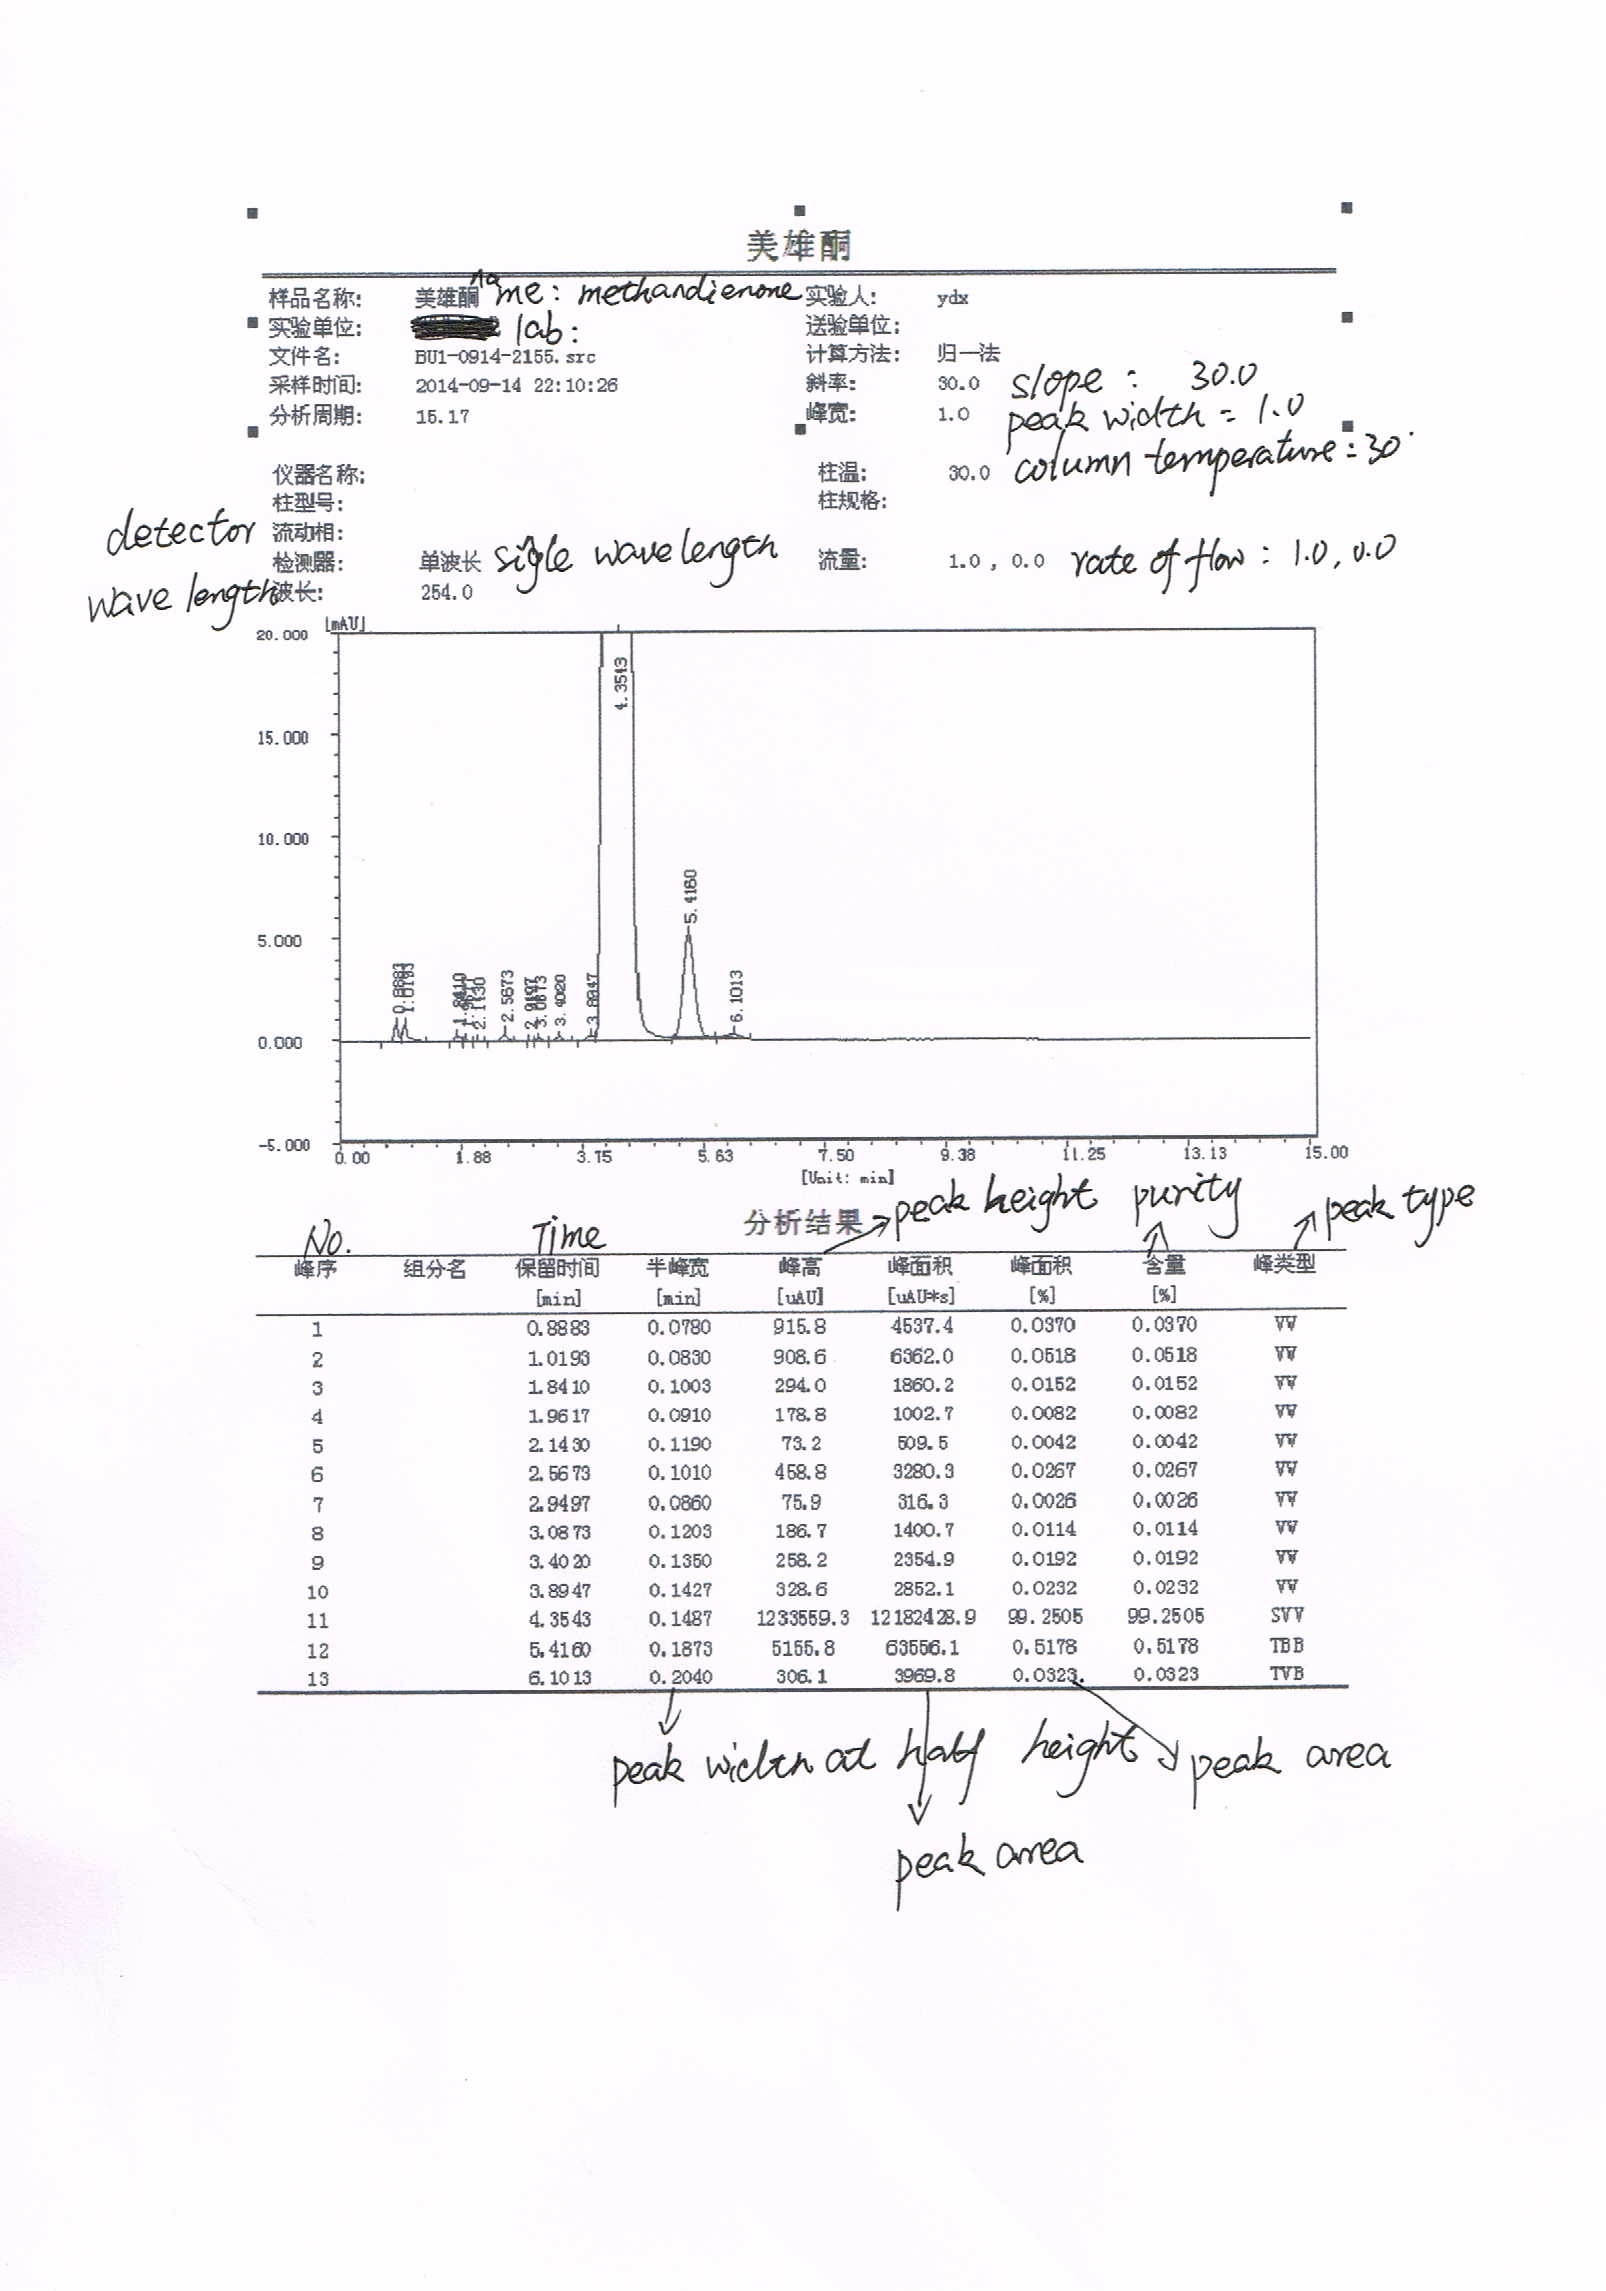 美雄酮
样品名称: 美雄酮 name: methandienone 实验人: ydx
实验单位: lab: 送验单位:
文件名: BU1-0914-2155.src 计算方法: 归一法
采样时间: 2014-09-14 22:10:26 斜率: 30.0 slope: 30.0
分析周期: 15.17 峰宽: 1.0 peak width = 1.0
仪器名称: 柱温: 30.0 column temperature: 30°
柱型号: 柱规格:
detector 流动相:
检测器: 单波长 sigle wavelength 流量: 1.0 , 0.0 rate of flow: 1.0, 0.0
wave length 波长: 254.0
[mAU]
20.000
15.000
10.000
5.000
0.000
-5.000
0.8883 1.0193 1.8410 2.1430 2.5673 2.9497 3.0873 3.4020 3.8947 4.3543 5.4160 6.1013
0.00 1.88 3.75 5.63 7.50 9.38 11.25 13.13 15.00
[Unit: min]
分析结果 peak height purity peak type
No. Time
峰序 组分名 保留时间 半峰宽 峰高 峰面积 峰面积 含量 峰类型
[min] [min] [uAU] [uAU*s] [%] [%]
1 0.8883 0.0780 915.8 4537.4 0.0370 0.0370 VV
2 1.0193 0.0830 908.6 6362.0 0.0518 0.0518 VV
3 1.8410 0.1003 294.0 1860.2 0.0152 0.0152 VV
4 1.9617 0.0910 178.8 1002.7 0.0082 0.0082 VV
5 2.1430 0.1190 73.2 509.5 0.0042 0.0042 VV
6 2.5673 0.1010 458.8 3280.3 0.0267 0.0267 VV
7 2.9497 0.0860 75.9 316.3 0.0026 0.0026 VV
8 3.0873 0.1203 186.7 1400.7 0.0114 0.0114 VV
9 3.4020 0.1350 258.2 2354.9 0.0192 0.0192 VV
10 3.8947 0.1427 328.6 2852.1 0.0232 0.0232 VV
11 4.3543 0.1487 1233559.3 12182428.9 99.2505 99.2505 SVV
12 5.4160 0.1873 5155.8 63556.1 0.5178 0.5178 TBB
13 6.1013 0.2040 306.1 3969.8 0.0323 0.0323 TVB
peak width at half height peak area
peak area